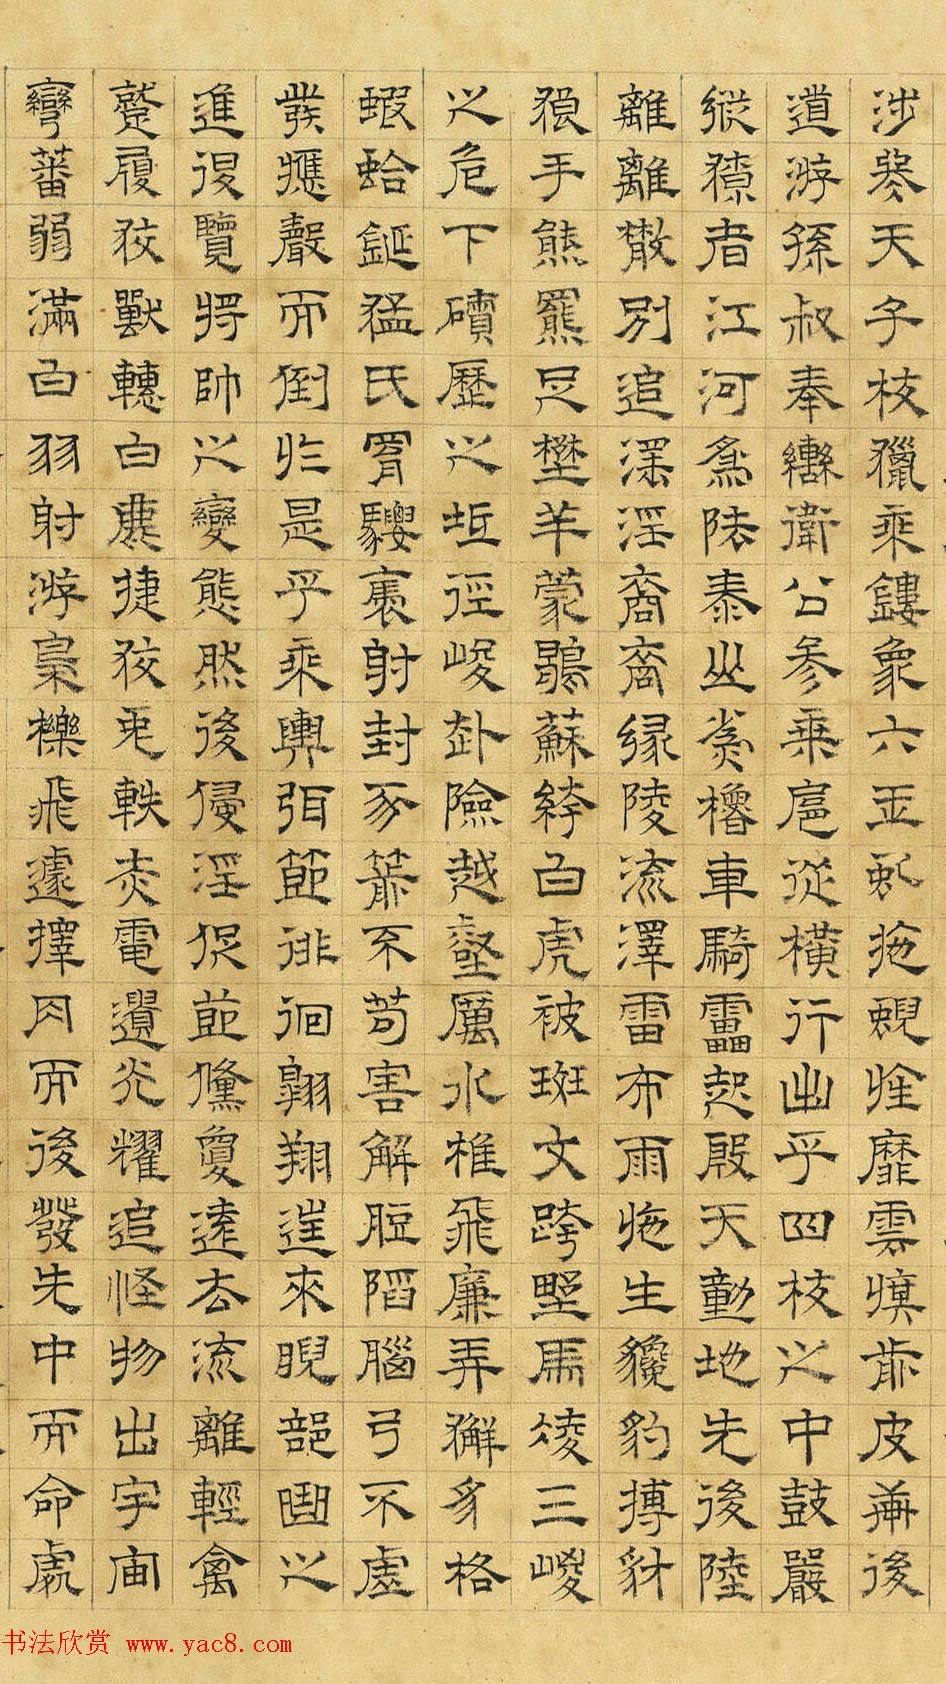 涉冬天子校獵乘鏤象六玉虯拖蜺旌靡雲旗前皮軒後
道游孫叔奉轡衛公參乘扈從橫行出乎四校之中鼓嚴
縱獠者江河為阹泰山為櫓車騎靁起殷天動地先後陸
離離散別追深淫裔裔緣陵流澤雷布雨施生貔豹搏豺
狼手熊羆足壄羊蒙鶡蘇絝白虎被斑文跨壄馬凌三嵕
之危下磧歷之坻徑峻赴險越壑厲水椎飛廉弄獬豸格
蝦蛤鋋猛氏羂騕褭射封豕箭不苟害解脰陷腦弓不虛
發應聲而倒於是乎乘輿弭節徘徊翱翔往來睨部曲之
進退覽將帥之變態然後侵淫促節儵夐遠去流離輕禽
蹵履狡獸轊白鹿捷狡兔軼赤電遺光耀追怪物出宇宙
彎蕃弱滿白羽射游梟櫟飛遽擇肉而後發先中而命處
书法欣赏 www.yac8.com